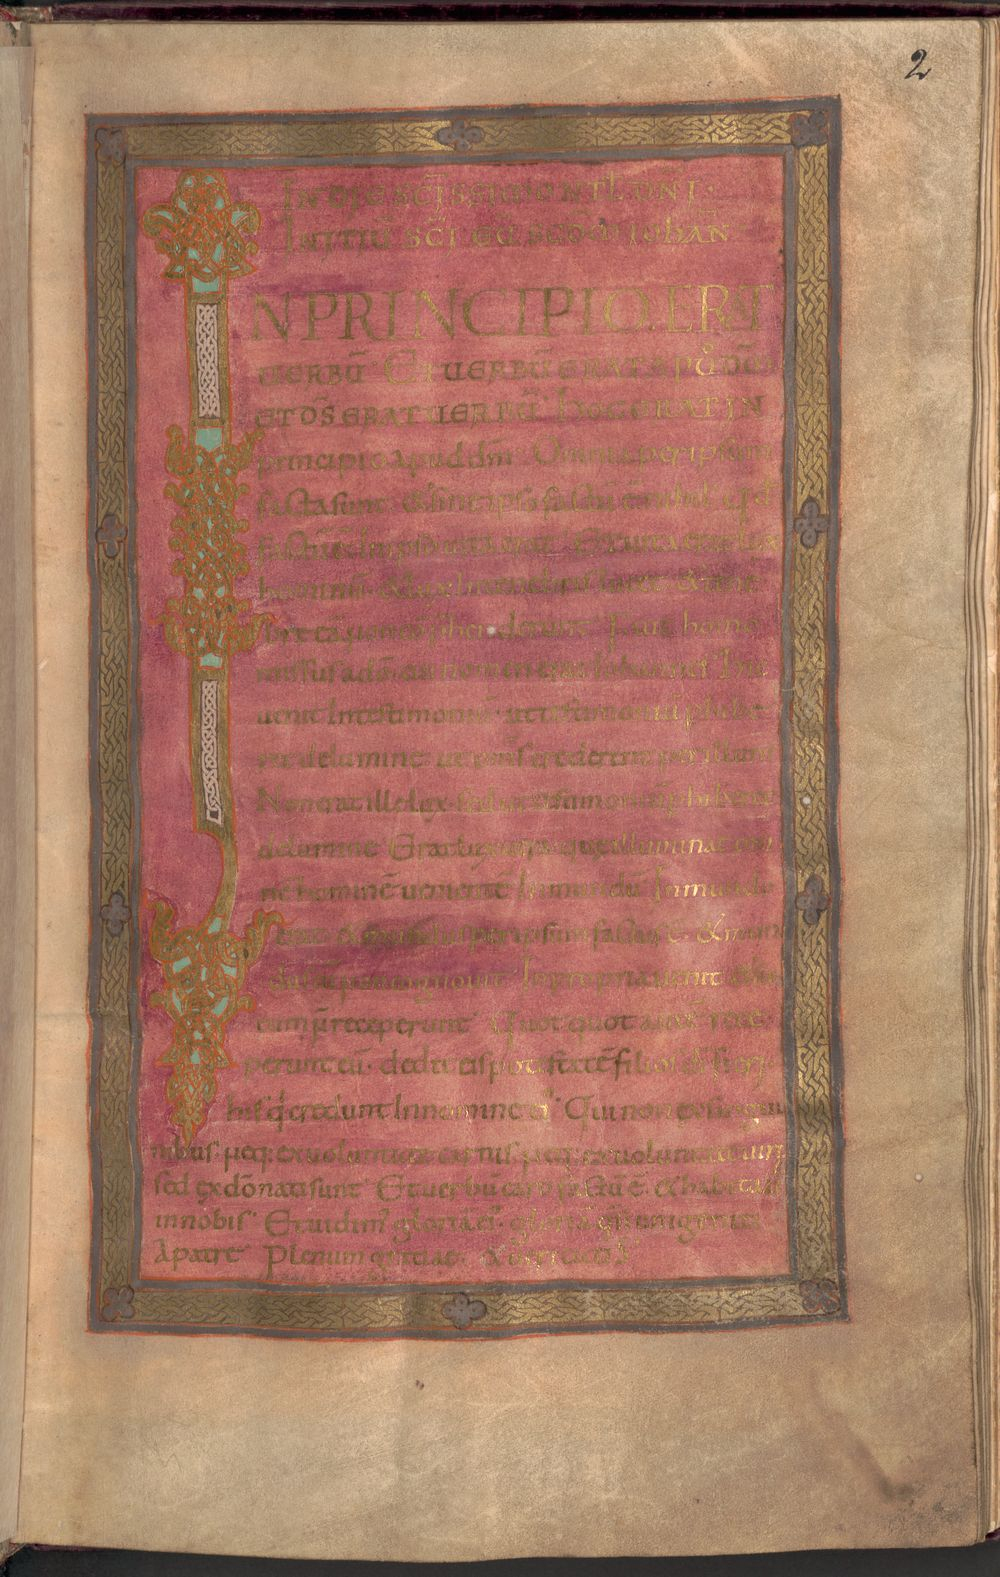 2
INITIŪ SC̄I EUG̅ SCD̄M IOHAN̄
IN PRINCIPIO ERAT
UERBŪ ET UERBŪ ERAT APUD DM̄
ET DS̄ ERAT UERBŪ HOC ERAT IN
principio apud dm̄ Omnia per ipsum
facta sunt & sine ipso factū ē nihil qd̄
factū ē in ipso uita erat & uita erat lux
hominū & lux in tenebris lucet & tene
brae eā non cōphenderunt Fuit homo
missus a dō cui nomen erat iohannes hic
uenit in testimoniū ut testimoniū phibe
ret de lumine ut om̄s crederent per illum
Non erat ille lux sed ut testimoniū phiberet
de lumine Erat lux uera quae illuminat om
nē hominē uenientē in mundū In mundo
erat & mundus per ipsum factus ē & mun
dus eū non cognouit In propria uenit & sui
eum n̄ receperunt Quotquot aut̄ rece
perunt eū dedit eis potestatē filios dī fieri
his q̄ credunt in nomine ei' Qui non ex sanguı
nibus neq; ex uoluntate carnis neq; ex uoluntate uiri
sed ex dō nati sunt Et uerbū caro factū ē & habitauit
in nobis Et uidim' gloriā ei' gloriā q̄si unigeniti
a patre Plenum gratiae & ueritatis